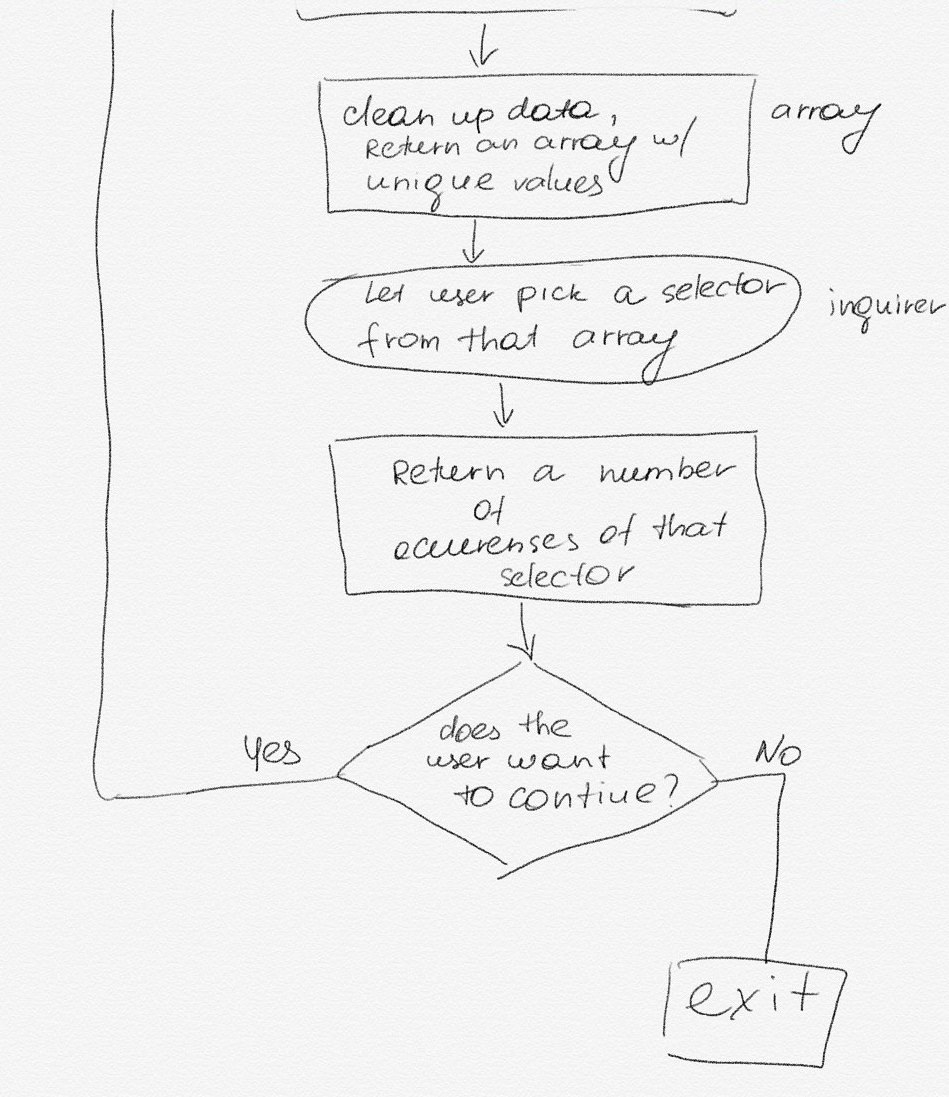 clean up data,
Return an array w/
unique values
array
Let user pick a selector
from that array
inquirer
Return a number
of
occurenses of that
selector
does the
user want
to contiue?
Yes
No
exit